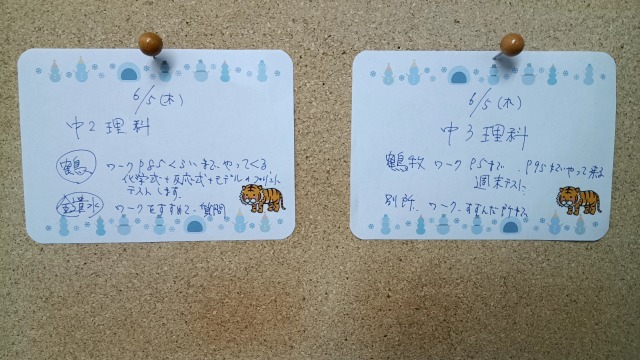 6/5(木)
中2 理科
鶴 ワーク P85くらいまでやってくる
化学式+反応式+モデル
テストします。
ワークをすすめて、質問
6/5(木)
中3 理科
鶴牧 ワーク P5まで、P95までやって来る
週末テスト
別所 ワーク すすんだ所まで